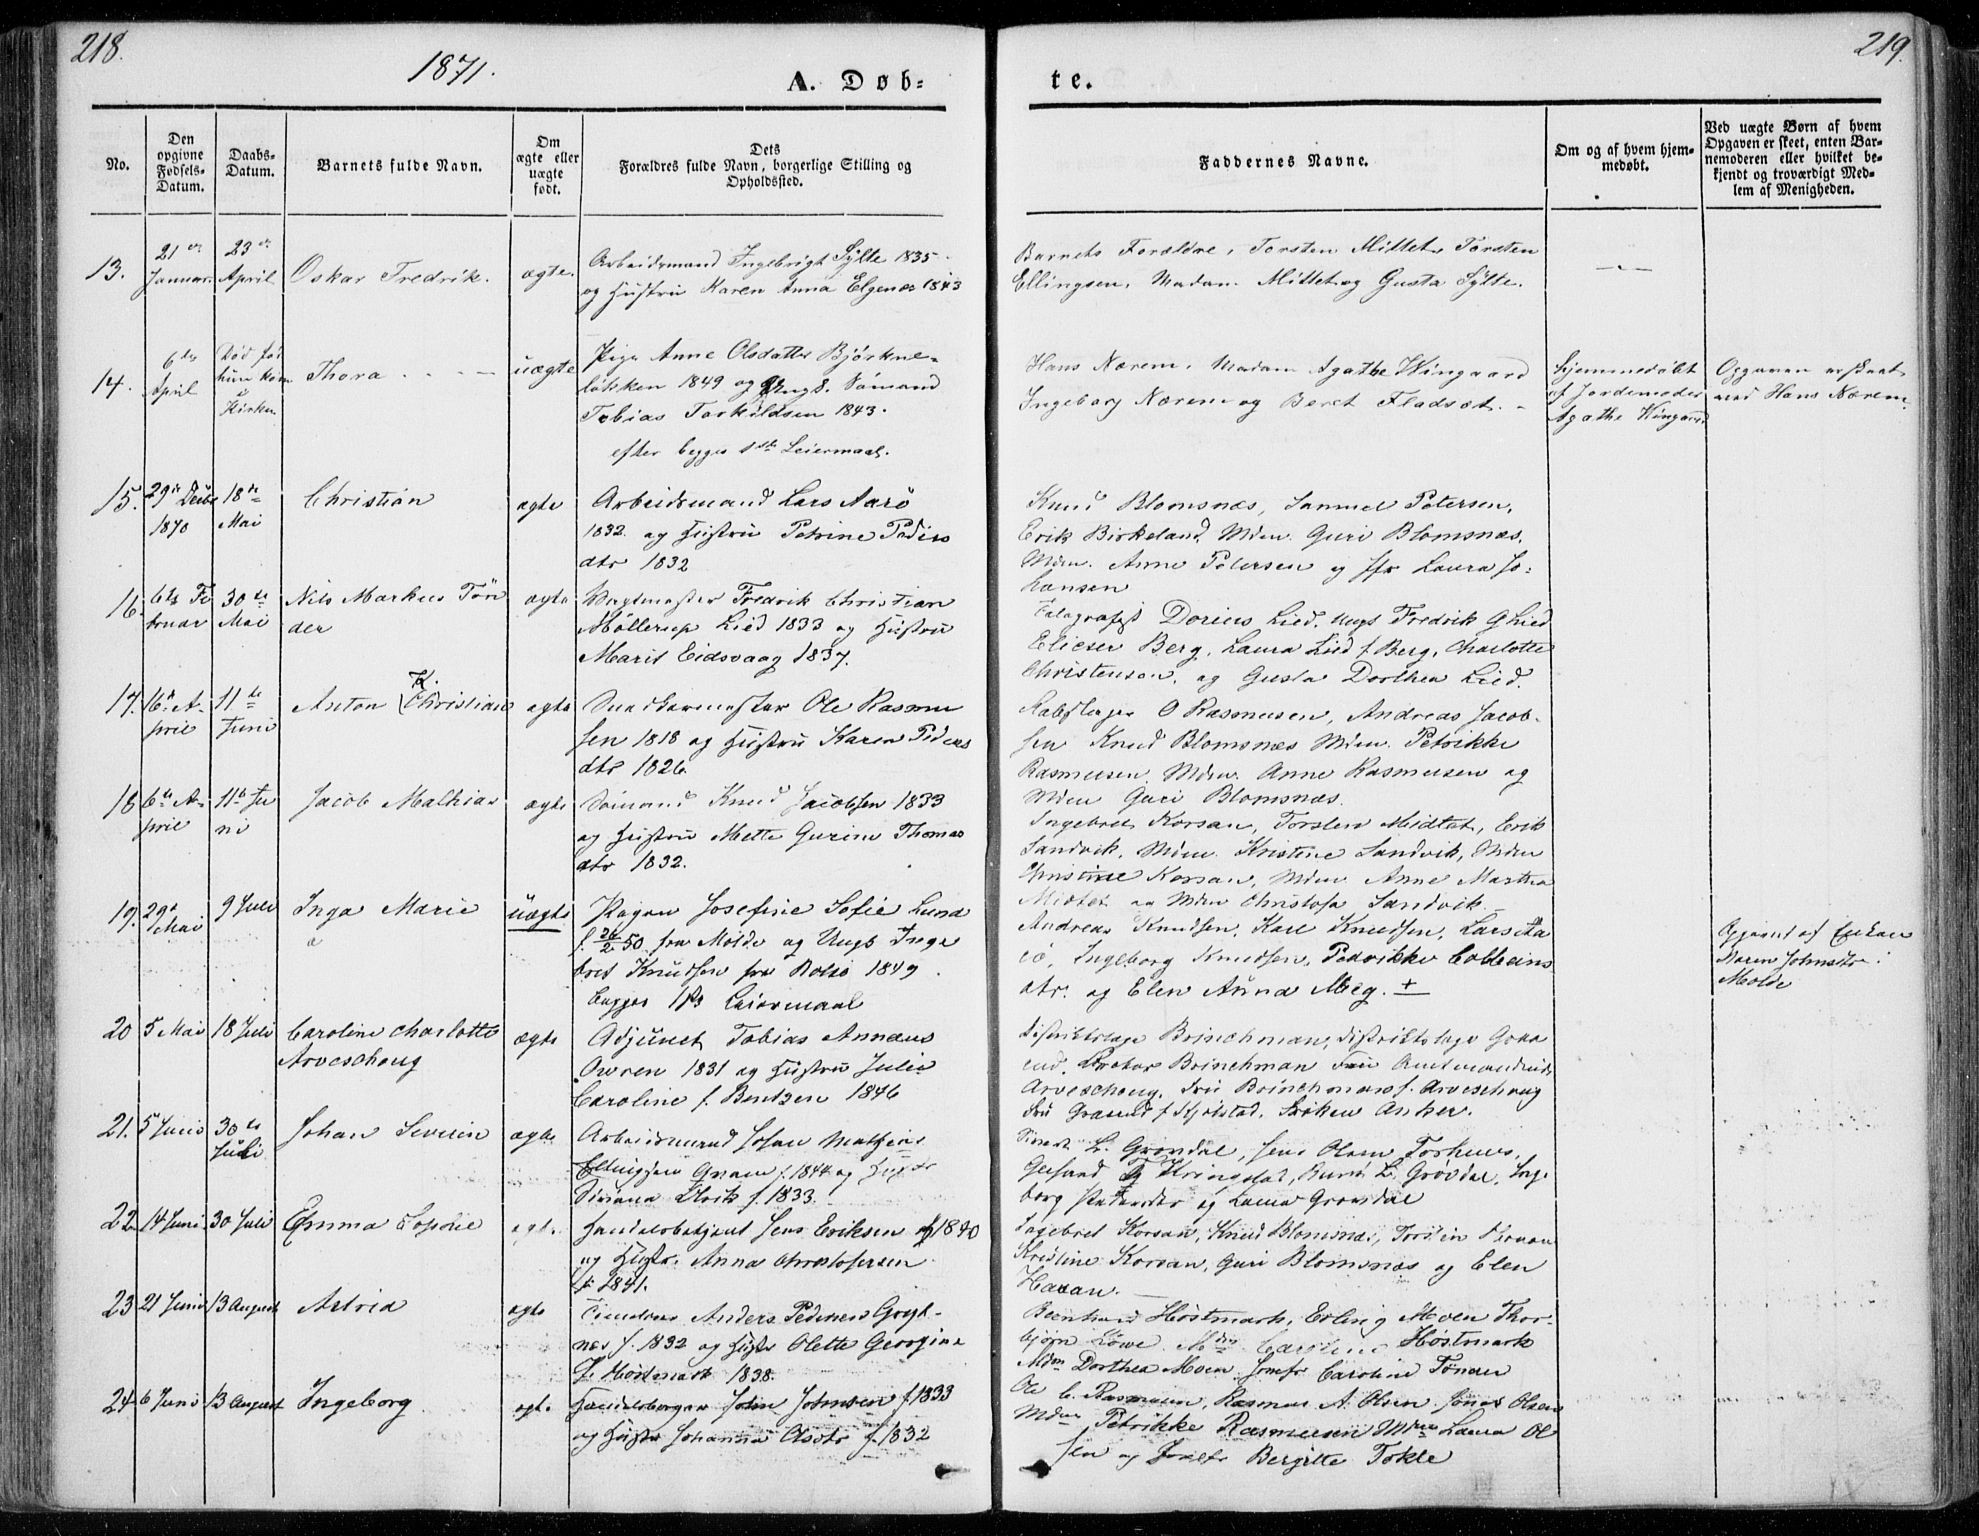 218.
1871.
A. Døb-
te.
219.
No.
Den
opgivne
Fødsels-
Datum.
Daabs-
Datum.
Barnets fulde Navn.
Om
ægte eller
uægte
født.
Dets
Forældres fulde Navn, borgerlige Stilling og
Opholdssted.
Faddernes Navne.
Om og af hvem hjem-
medøbt.
Ved uægte Børn af hvem
Opgaven er skeet, enten Bar-
nemoderen eller hvilket be-
kjendt og troværdigt Med-
lem af Menigheden.
13.
21de
Januar
23de
April
Oskar Fredrik.
ægte.
Arbeidsmand Ingebrigt Sylte 1835
og Hustru Karen Anna Elgenæs 1843
Barnets Forældre, Torsten Mittet, Torsten
Ellingsen, Madam Mittet og Gusta Sylte.
14.
6te
April
Død før
hun kom
i Kirken
Thora
uægte
Pige Anne Olsdatter Bjørkne-
løkken 1849 og Ungk. Sömand
Tobias Torkildsen 1843.
efter begges 1ste Leiermaal.
Hans Nærem, Madam Agathe Wingaard
Ingeborg Nærem og Beret Fladsæt.
Hjemmedøbt
af Jordemoder
Agathe Wingaard
Opgaven er skeet
ved Hans Nærem.
15.
29de Decbr
1870
18de
Mai
Christian
ægte
Arbeidsmand Lars Aarö
1832 og Hustru Petrine Peders
dtr 1832
Knud Blomsnæs, Samuel Petersen,
Erik Birkeland, Mdm. Guri Blomsnæs,
Mdm. Anne Petersen og Jfr Laura Jo-
hansen
16.
6te Fe
bruar
30te
Mai
Nils Markus Tön
der
ægte
Fredrik Christian
Møllerup Lied 1833 og Hustru
Marit Eidsvaag 1837.
Telegrafist Dorius Lied, Ungk Fredrik G Lied
Elieser Berg, Laura Lied f. Berg, Charlotte
Christensen, og Gusta Dorthea Lied.
17.
6te A-
pril
11te
Juni
Anton K. Christian
ægte
Ole Rasmu
sen 1818 og Hustru Karen Peders
dtr 1826
O Rasmusen, Andreas Jacob-
sen Knud Blomsnæs Mdm. Petrikke
Rasmusen, Mdm. Anne Rasmusen og
Mdm Guri Blomsnæs.
18
6te A-
pril
11te Ju
ni
Jacob Mathias
ægte
Sömand Knud Jacobsen 1833
og Hustru Mette Gurine Thomas
dtr 1832.
Ingebret Korsan, Torsten Midtet, Erik
Sandvik, Mdm. Kristine Sandvik, Mdm
Christine Korsan, Mdm Anne Martha
Midtet og Mdm Christofa Sandvik
19.
29de
Mai
9 Juli
Inga Marie
uægte
Pigen Josefine Sofie Lund
f. 26/2 50 fra Molde og Ungk Inge
bret Knudsen fra Bolsö 1849
begges 1ste Leiermaal
Andreas Knudsen, Karl Knudsen, Lars Aa
rö, Ingeborg Knudsen, Pedrikke Colbeins
dtr. og Elen Anna Meg.
Opgivet af Enken
Karen Johnsdtr
Molde
20
5 Mai
18 Juli
Caroline Charlotte
Arveschoug
ægte
Adjunct Tobias Annæus
Owren 1831 og Hustru Julie
Caroline f. Bentzen 1846
Distriktslæge Brinchman, Distriktslæge Graa
rud, Doktor Brinchman Fru Amtmandinde
Arveschoug, Fru Brinchman f. Arveschoug
Fru Graarud f Kjølstad, Frøken Anker.
21.
5 Juni
30te
Juli
Johan Severin
ægte
Arbeidsmand Johan Mathias
Ellingsen Gnam f. 1844 og Hustr
Siviana Ulvik f. 1833.
L. Grøndal, Jens Olsen Torhuus,
Kringstad, L. Grøvdal, Inge
borg og Laura Grovdal
22
14 Juni
30 Juli
Emma Sophie
egte
Handelsbetjent Jens Eriksen f 1840
og Hustr. Anna Christofersen
f. 1841.
Ingebret Korsan, Knud Blomsnæs, Torstein
Kristine Korsan, Guri Blomsnæs og Elen
Havan.
23
21 Juni
13 August
Astrid
egte
Anders Pedersen
nes f. 1832 og Hustr Olette Georgine
f. Høstmark 1838.
Bernhard Høstmark, Erling Moen Thor-
bjørn Løwe, Mdm Caroline Høstmark
Mdm Dorthea Moen Jomfr Caroline Tønder
24
6 Juni
13 August
Ingeborg
egt.
Handelsborger John Johnsen f. 1833
og Hustr Johanna Olsdtr f. 1832
Ole C. Rasmusen, Rasmus A. Olsen, Jonas Olsen
Mdm Petrikke Rasmusen Mdm Laura Ol
sen og Jomfr Bergitte Tokle